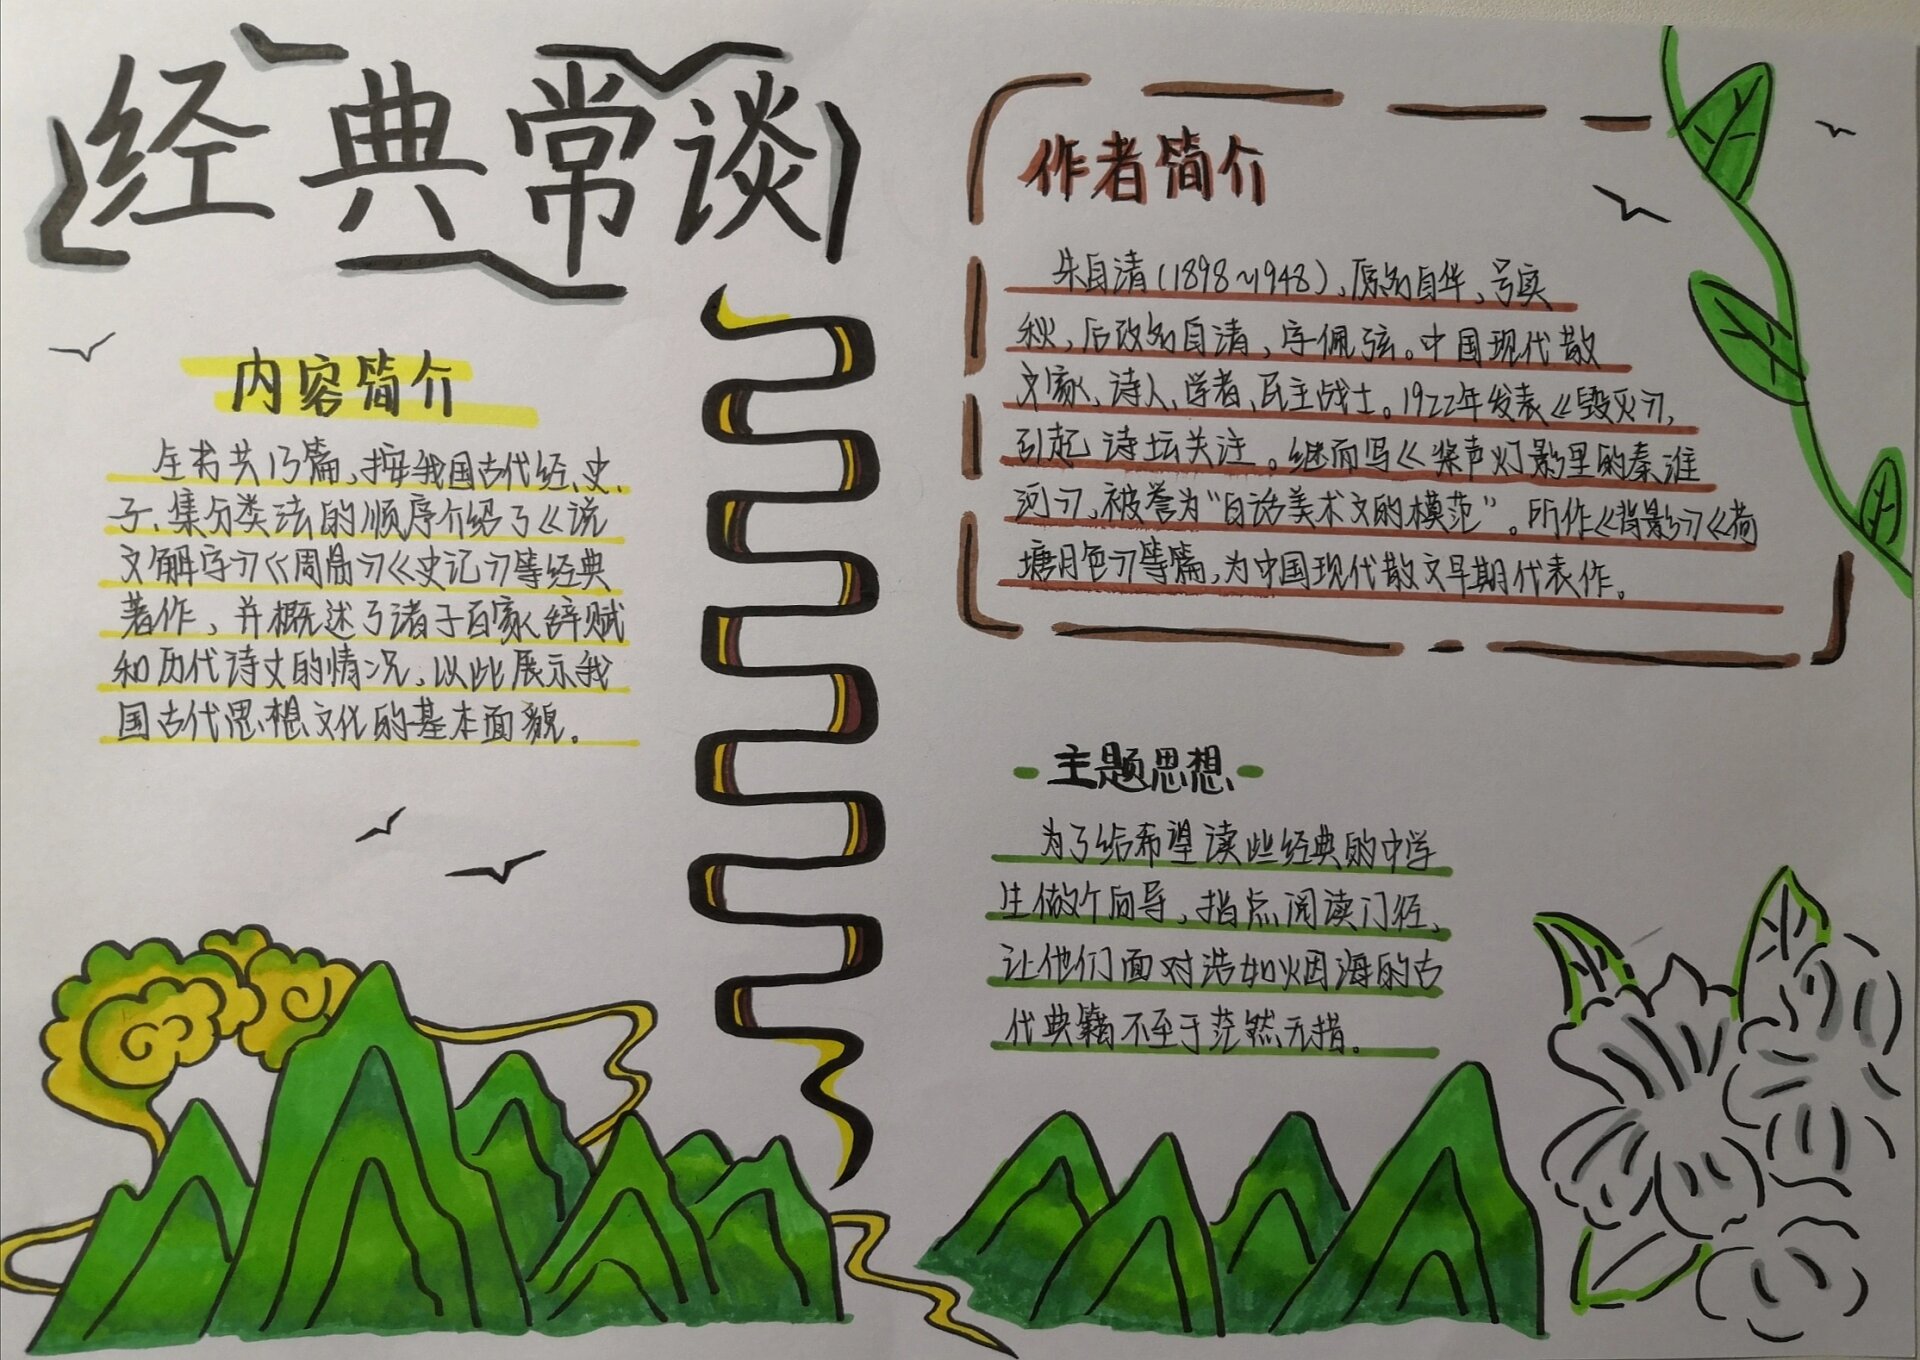 经典常谈
内容简介
全书共13篇,按我国古代经、史、
子、集分类法的顺序介绍了《说
文解字》《周易》《史记》等经典
著作,并概述了诸子百家、辞赋
和历代诗文的情况,以此展示我
国古代思想文化的基本面貌。
作者简介
朱自清(1898~1948),原名自华,号实
秋,后改名自清,字佩弦。中国现代散
文家、诗人、学者、民主战士。1922年发表《毁灭》,
引起诗坛关注。继而写《桨声灯影里的秦淮
河》,被誉为“白话美术文的模范”。所作《背影》《荷
塘月色》等篇,为中国现代散文早期代表作。
主题思想
为了给希望读些经典的中学
生做个向导,指点阅读门径,
让他们面对浩如烟海的古
代典籍不至于茫然无措。